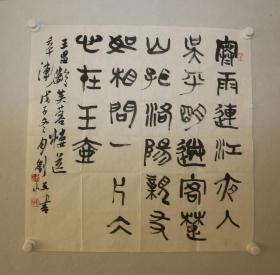 寒雨連江夜入
吳平明送客楚
山孤洛陽親友
如相問一片仌
心在王壺
王昌齡芙蓉樓送
辛漸戊子冬月劉書